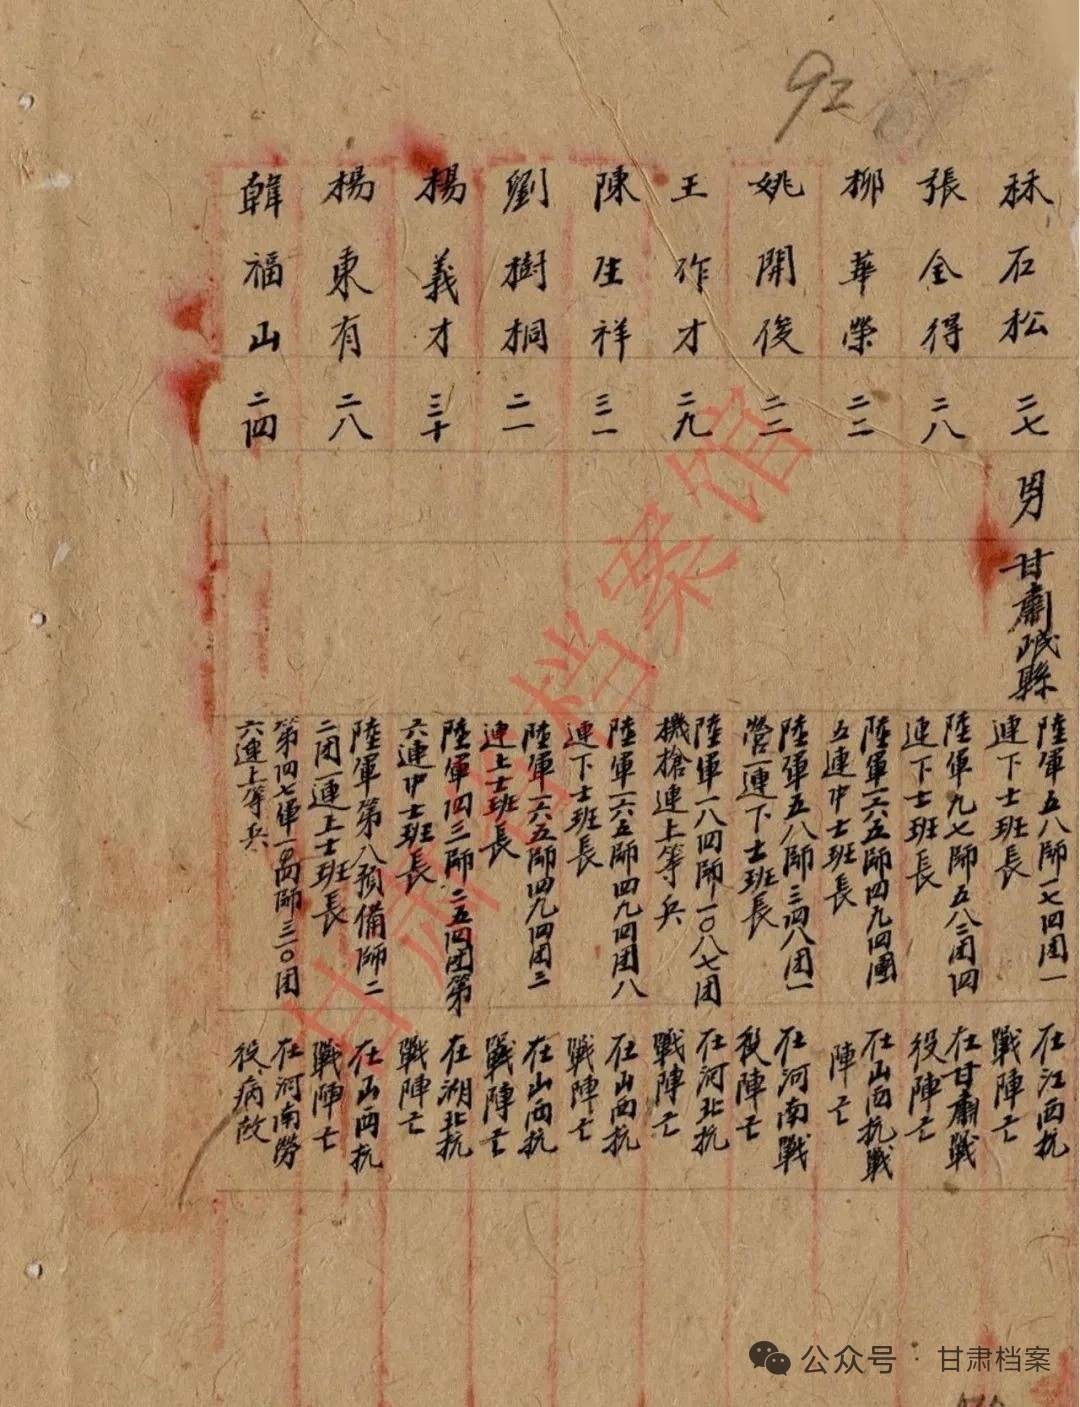 92
林石松 二七 男 甘肅岷縣 陸軍五八師一七四团一連下士班長 在江西抗戰陣亡
張全得 二八 陸軍九七師五八二团四連下士班長 在甘肅戰役陣亡
柳華榮 二二 陸軍一六五師四九四團五連中士班長 在山西抗戰陣亡
姚開俊 二二 陸軍五八師三四八团一營一連下士班長 在河南戰役陣亡
王作才 二九 陸軍一八四師一〇八七团機槍連上等兵 在河北抗戰陣亡
陳生祥 三一 陸軍一六五師四九四团八連下士班長 在山西抗戰陣亡
劉樹桐 二一 陸軍一六五師四九四团三連上士班長 在山西抗戰陣亡
楊義才 三十 陸軍四三師一二五四团第六連中士班長 在湖北抗戰陣亡
楊東有 二八 陸軍第八預備師二二团一連上士班長 在山西抗戰陣亡
韓福山 二四 第四七軍一 師三一〇团六連上等兵 在河南勞役病故
甘肃档案馆
公众号 · 甘肃档案